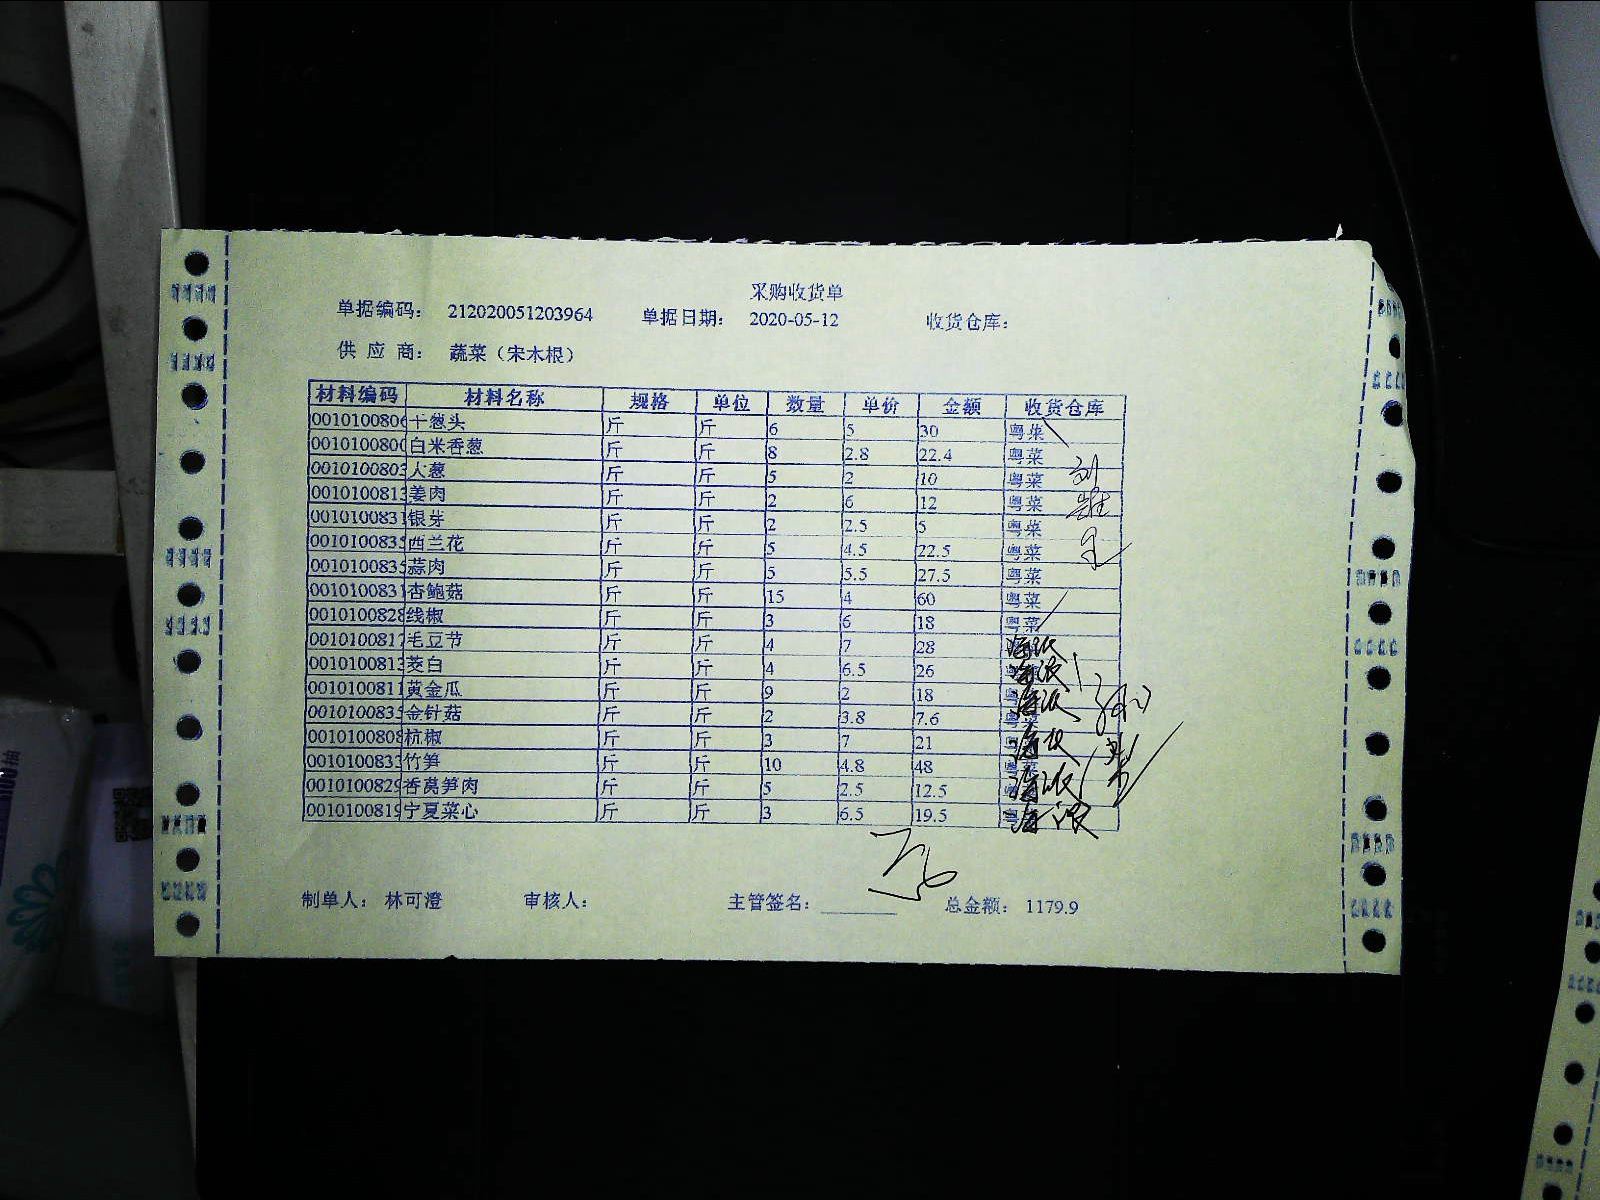 采购收货单
单据编码： 212020051203964 单据日期： 2020-05-12 收货仓库：
供 应 商： 蔬菜（宋木根）
材料编码 材料名称 规格 单位 数量 单价 金额 收货仓库
0010100806 干葱头 斤 斤 6 5 30 粤菜
001010080 白米香葱 斤 斤 8 2.8 22.4 粤菜
0010100803 大葱 斤 斤 5 2 10 粤菜
0010100813 姜肉 斤 斤 2 6 12 粤菜
0010100831 银芽 斤 斤 2 2.5 5 粤菜
0010100835 西兰花 斤 斤 5 4.5 22.5 粤菜
0010100835 蒜肉 斤 斤 5 5.5 27.5 粤菜
0010100831 杏鲍菇 斤 斤 15 4 60 粤菜
0010100828 线椒 斤 斤 3 6 18 粤菜
0010100817 毛豆节 斤 斤 4 7 28 海派
0010100813 茭白 斤 斤 4 6.5 26 海派
0010100811 黄金瓜 斤 斤 9 2 18 海派
0010100835 金针菇 斤 斤 2 3.8 7.6
0010100808 杭椒 斤 斤 3 7 21 海派
0010100833 竹笋 斤 斤 10 4.8 48
0010100829 香莴笋肉 斤 斤 5 2.5 12.5 海派
0010100819 宁夏菜心 斤 斤 3 6.5 19.5 海派
制单人： 林可澄 审核人： 主管签名： 总金额： 1179.9